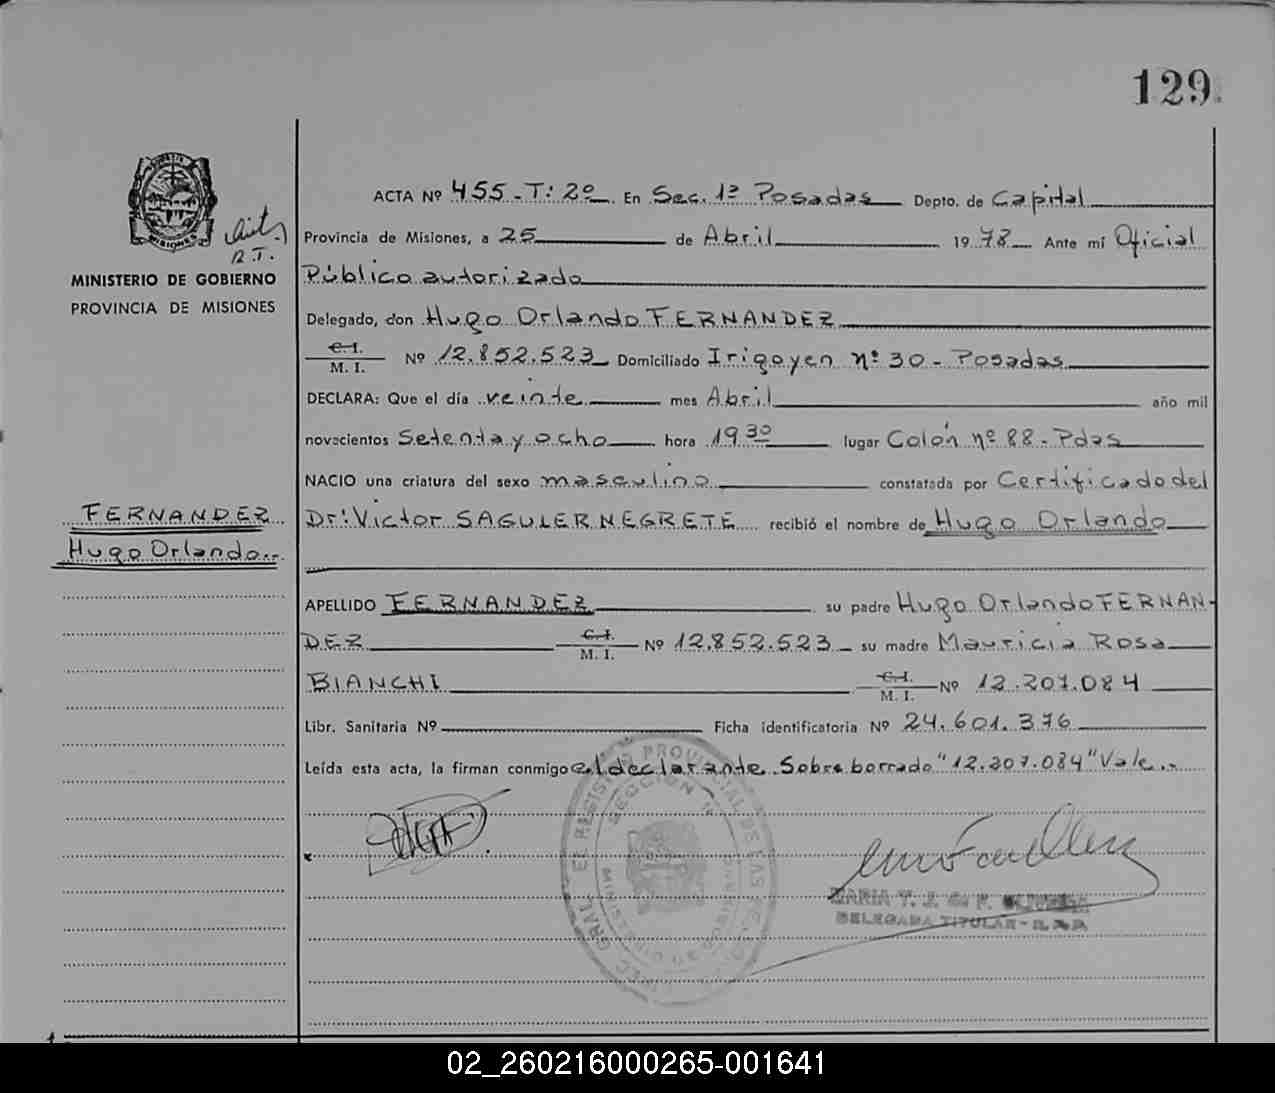 129
ACTA Nº 455-T: 2º En Sec. 1ª Posadas Depto. de Capital
Provincia de Misiones, a 25 de Abril 1978 Ante mí Oficial
MINISTERIO DE GOBIERNO
PROVINCIA DE MISIONES
Público autorizado
Delegado, don Hugo Orlando FERNANDEZ
C.I.
M. I. Nº 12.852.523 Domiciliado Irigoyen nº 30 - Posadas
DECLARA: Que el día veinte mes Abril año mil
novecientos Setenta y ocho hora 19 30 lugar Colón nº 88 - Pdas
NACIO una criatura del sexo masculino constatada por Certificado del
FERNANDEZ
Hugo Orlando
Dr: Victor SAGULER NEGRETE recibió el nombre de Hugo Orlando
APELLIDO FERNANDEZ su padre Hugo Orlando FERNAN-
DEZ C.I. M. I. Nº 12.852.523 su madre Mauricia Rosa
BIANCHI C.I. M. I. Nº 12.207.084
Libr. Sanitaria Nº Ficha identificatoria Nº 24.601.376
Leída esta acta, la firman conmigo el declarante. Sobre borrado "12.207.084" Vale.-
SECCION 1ª
MARIA T. J. de F.
DELEGADA TITULAR -
02_260216000265-001641